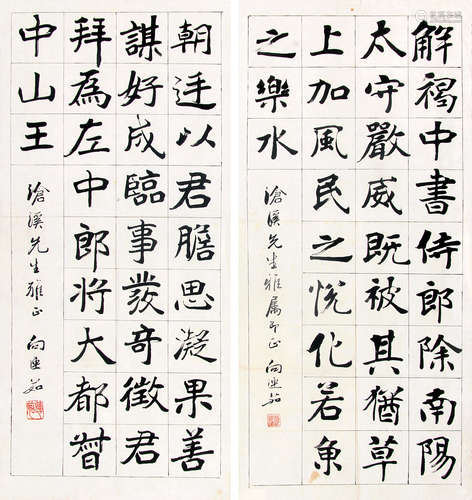 解褐中書侍郎除南陽
太守嚴威既被其猶草
上加風民之悅化若魚
之樂水
滄溪先生雅屬即正 向迪琮
朝廷以君膽思凝果善
謀好成臨事發奇徵君
拜爲左中郎將大都督
中山王
滄溪先生雅正 向迪琮